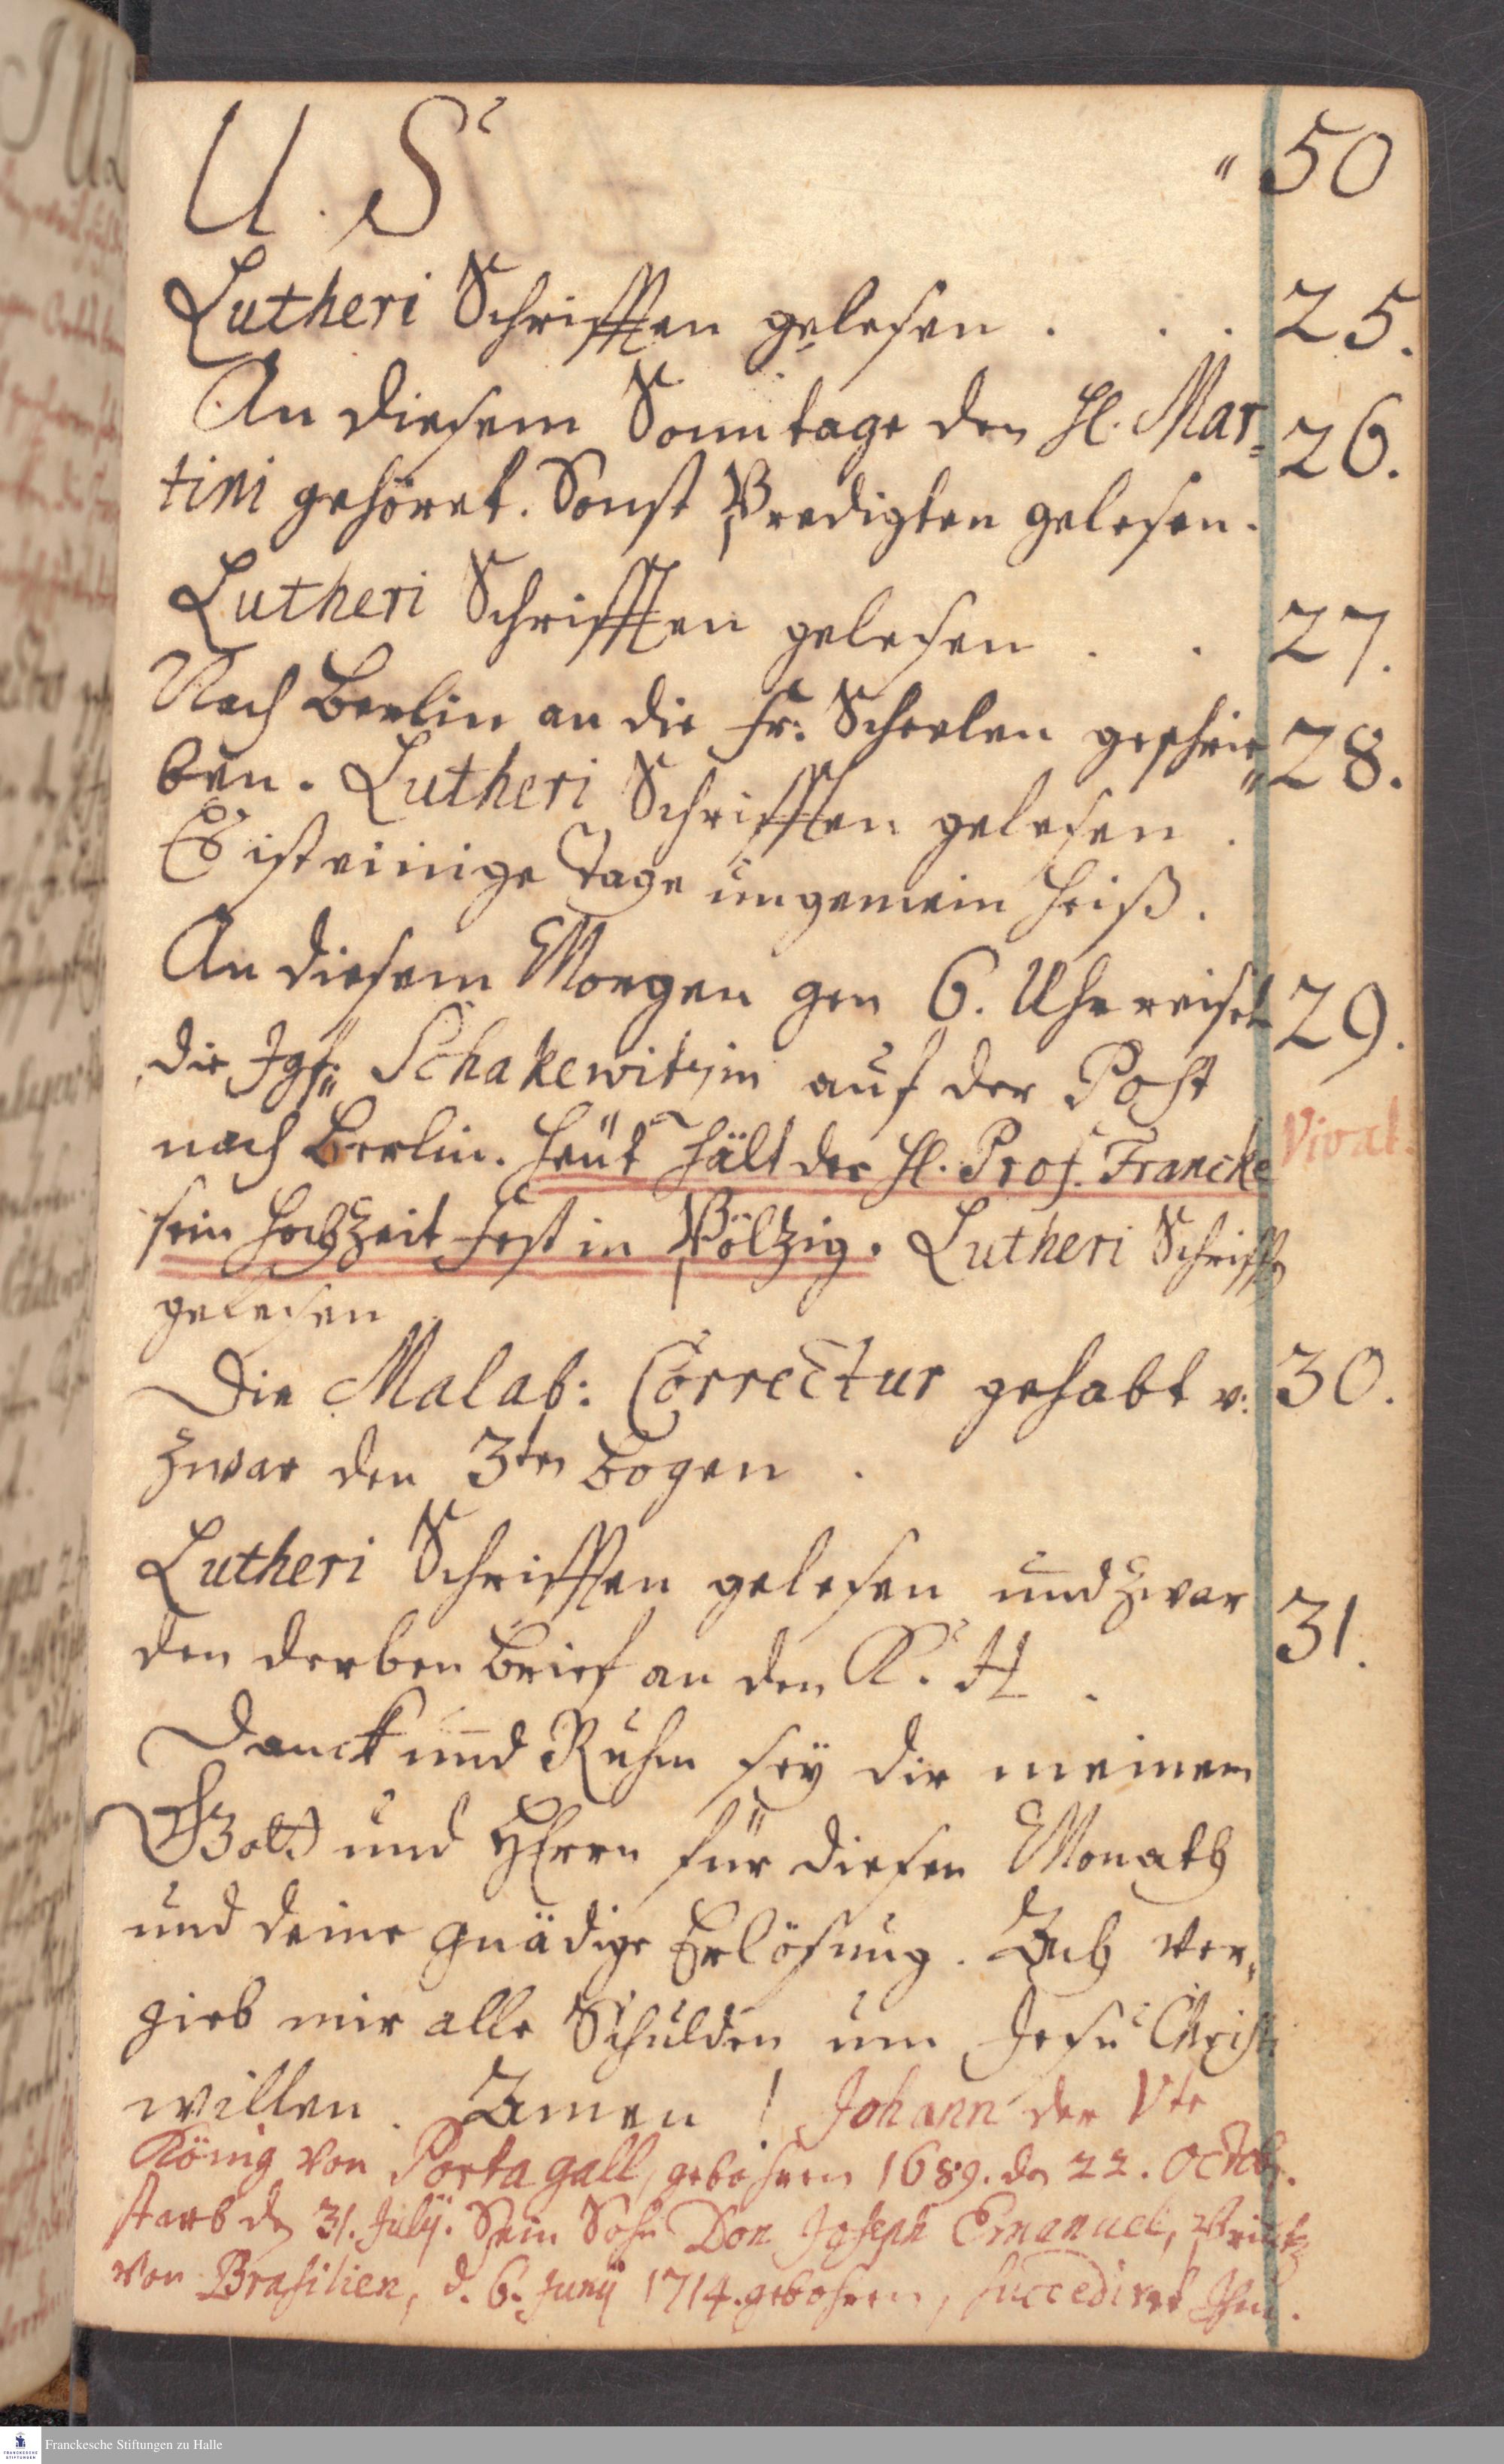 U. S " 50
Lutheri Schrifften gelesen . . . 25.
An diesem Sonntage den H. Mar= 26.
tini gehöret. Sonst Predigten gelesen.
Lutheri Schrifften gelesen . . 27.
Nach Berlin an die Fr: Scheelen geschrie= 28.
ben. Lutheri Schrifften gelesen.
Es ist einige Tage ungemein heiß.
An diesem Morgen gen 6. Uhr reiset 29.
die Jgf: Schakewitzin auf der Post
nach Berlin. Heut hält der H. Prof. Francke Vivat.
sein Hochzeit Fest in Pöltzig. Lutheri Schrifften
gelesen
Die Malab: Correctur gehabt u: 30.
zwar den 3ten Bogen.
Lutheri Schrifften gelesen und zwar 31.
den derben Brief an den K. H.
Danck und Ruhm sey dir meinem
Gott und HErrn für diesen Monath
und deine gnädige Erlösung. Ach ver=
gieb mir alle Schulden um Jesu Christi
willen. Amen! Johann der Vte
König von Portagall, gebohren 1689. den 22. Octobr.
starb den 31. Julÿ. Sein Sohn Don Joseph Emanuel, Printz
von Brasilien, d. 6. Junÿ 1714. gebohren, succediret Ihm.
Franckesche Stiftungen zu Halle